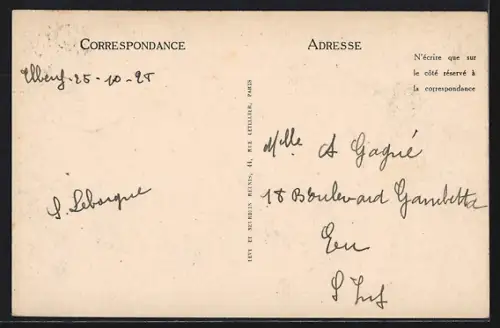 CORRESPONDANCE
ADRESSE
N'écrire que sur
le côté réservé à
la correspondance
Elbeuf-25-10-25
LEVY ET NEURDEIN RÉUNIS, 44, RUE LETELLIER, PARIS
Mlle A Gagné
18 Boulevard Gambetta
S. Lebourque
Eu
S Inf